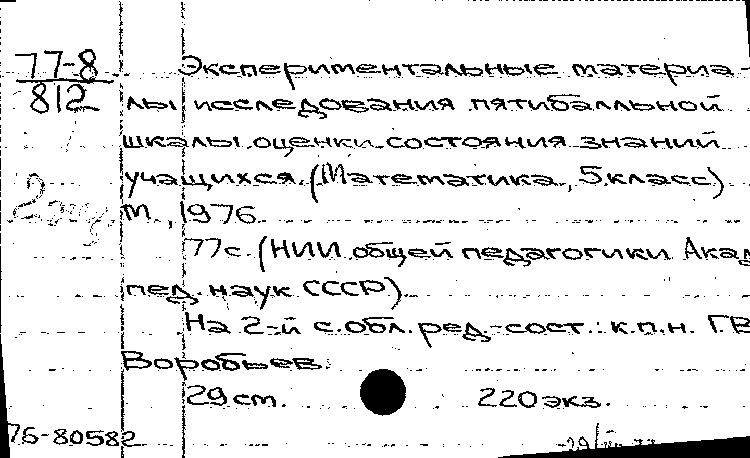 77-8
812
Экспериментальные материа-
лы исследования пятибалльной
шкалы оценки состояния знаний
учащихся. (Математика, 5 класс)
М., 1976.
77 с. (НИИ общей педагогики Акад
пед. наук СССР)
На 2-й с. обл. ред.-сост.: к.п.н. Г.В
Воробьев.
29 см. 220 экз.
76-80582
2 экз.